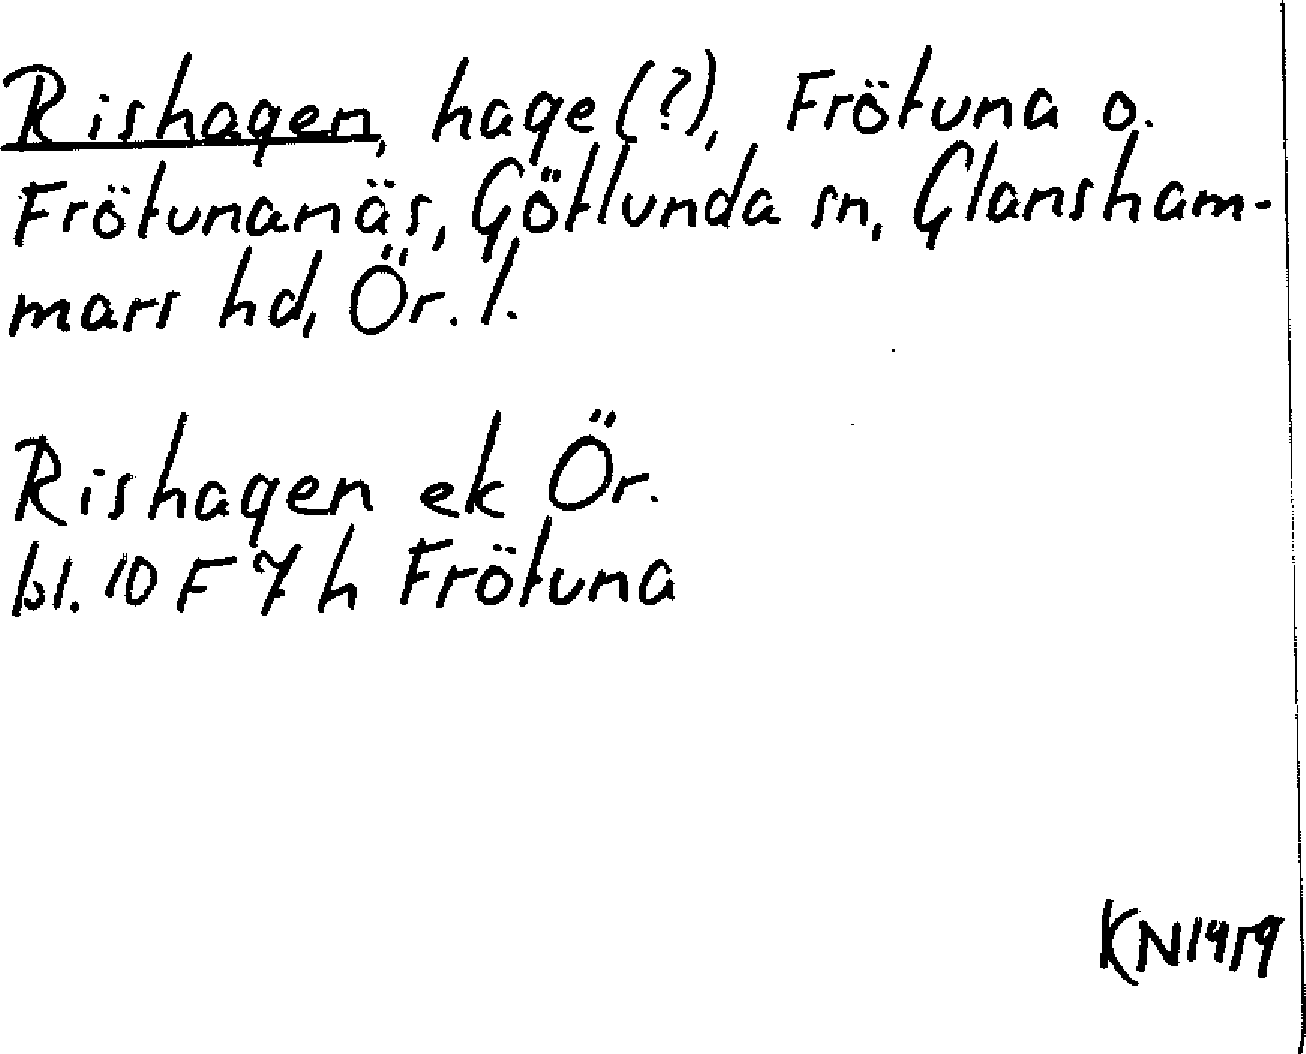 Rishagen, hage (?), Frötuna o.
Frötunanäs, Götlunda sn, Glansham-
mars hd, Ör. l.
Rishagen ek Ör.
bl. 10 F 7 h Frötuna
KN 1959